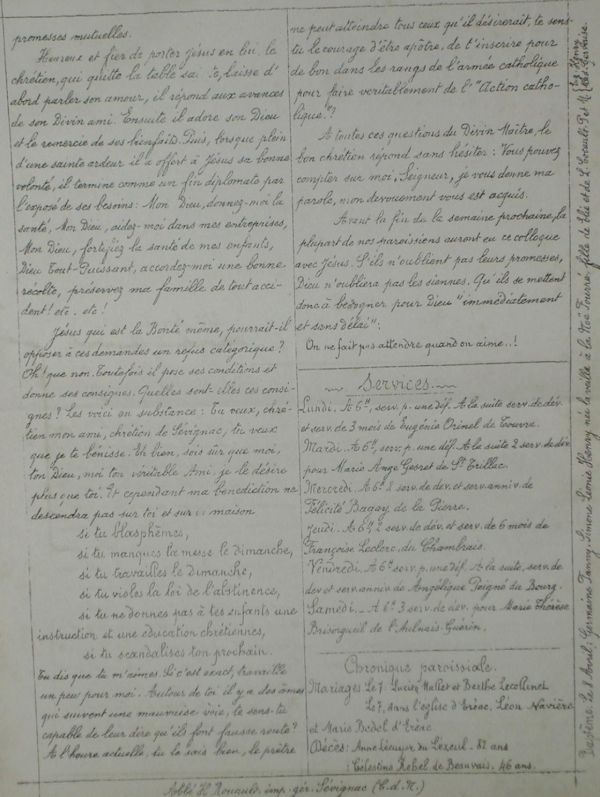 promesses mutuelles.
Heureux et fier de porter Jésus en lui, le
chrétien, qui quitte la table laisse d'
abord parler son amour, il répond aux avances
de son Divin ami. Ensuite il adore son Dieu
et le remercie de ses bienfaits. Puis, lorsque plein
d'une sainte ardeur il a offert à Jésus sa bonne
volonté, il termine comme un fin diplomate par
l'exposé de ses besoins: Mon Dieu, donnez-moi la
santé, Mon Dieu, aidez-moi dans mes entreprises,
Mon Dieu, fortifiez la santé de mes enfants,
Dieu Tout-Puissant, accordez-moi une bonne
récolte, préservez ma famille de tout acci-
dent! etc. etc!
Jésus qui est la Bonté même, pourrait-il
opposer à ces demandes un refus catégorique?
Oh! que non. Toutefois il pose ses conditions et
donne ses consignes. Quelles sont-elles ces consi-
gnes? Les voici en substance: Tu veux, chré-
tien mon ami, chrétien de Sévignac, tu veux
que je te bénisse. Eh bien, sois sûr que moi,
ton Dieu, moi ton véritable Ami, je le désire
plus que toi. Et cependant ma bénédiction ne
descendra pas sur toi et sur maison
si tu blasphèmes,
si tu manques la messe le dimanche,
si tu travailles le dimanche,
si tu violes la loi de l'abstinence,
si tu ne donnes pas à tes enfants une
instruction et une éducation chrétiennes,
si tu scandalises ton prochain.
Tu dis que tu m'aimes. Si c'est exact, travaille
un peu pour moi. Autour de toi il y a des âmes
qui suivent une mauvaise voie, te sens-tu
capable de leur dire qu'ils font fausse route?
A l'heure actuelle, tu le sais bien, le prêtre
ne peut atteindre tous ceux qu'il désirerait, te sens-
tu le courage d'être apôtre, de t'inscrire pour
de bon dans les rangs de l'armée catholique
pour faire véritablement de l'"Action catho-
lique"?
A toutes ces questions du Divin Maître, le
bon chrétien répond sans hésiter: Vous pouvez
compter sur moi, Seigneur, je vous donne ma
parole, mon dévouement vous est acquis.
Avant la fin de la semaine prochaine, la
plupart de nos paroissiens auront eu ce colloque
avec Jésus. S'ils n'oublient pas leurs promesses,
Dieu n'oubliera pas les siennes. Qu'ils se mettent
donc à besogner pour Dieu "immédiatement
et sans délai".
On ne fait pas attendre quand on aime..!
Services.
Lundi. A 6h, serv. p. une déf. A la suite serv. de dév.
et serv. de 3 mois de Eugénie Orinel de Touvre.
Mardi. A 6h, serv. p. une déf. A la suite 2 serv. de dév.
pour Marie Ange Gesret de St Trillac.
Mercredi. A 6h 2 serv. de dév. et serv. anniv. de
Félicité Bagoy de la Pierre.
Jeudi. A 6h, 2 serv. de dév. et serv. de 6 mois de
Françoise Leclerc du Chambrais.
Vendredi. A 6h serv. p. une déf. A la suite, serv. de
dév. et serv. anniv. de Angélique Poigné du Bourg.
Samedi. A 6h 3 serv. de dév. pour Marie Thérèse
Brisorgueil de l'Aulnais-Guérin.
Chronique paroissiale.
Mariages Le 7. Lucien Hallet et Berthe Lecollinet
Le 7, dans l'église d'Eréac, Léon Navière
et Marie Bedel d'Eréac
Décès: Anne Lécuyer du Lézeul. 82 ans
: Célestine Rebel de Beauvais. 46 ans.
Baptême. Le 8 Avril, Germaine Fanny Simone Léonie Henry née la veille à la Noë Fourré, fille de Elie et de
Abbé H. imp. gér. Sévignac (C.d.N.)